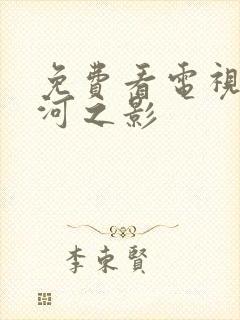 免費看電視
河之影
李東賢